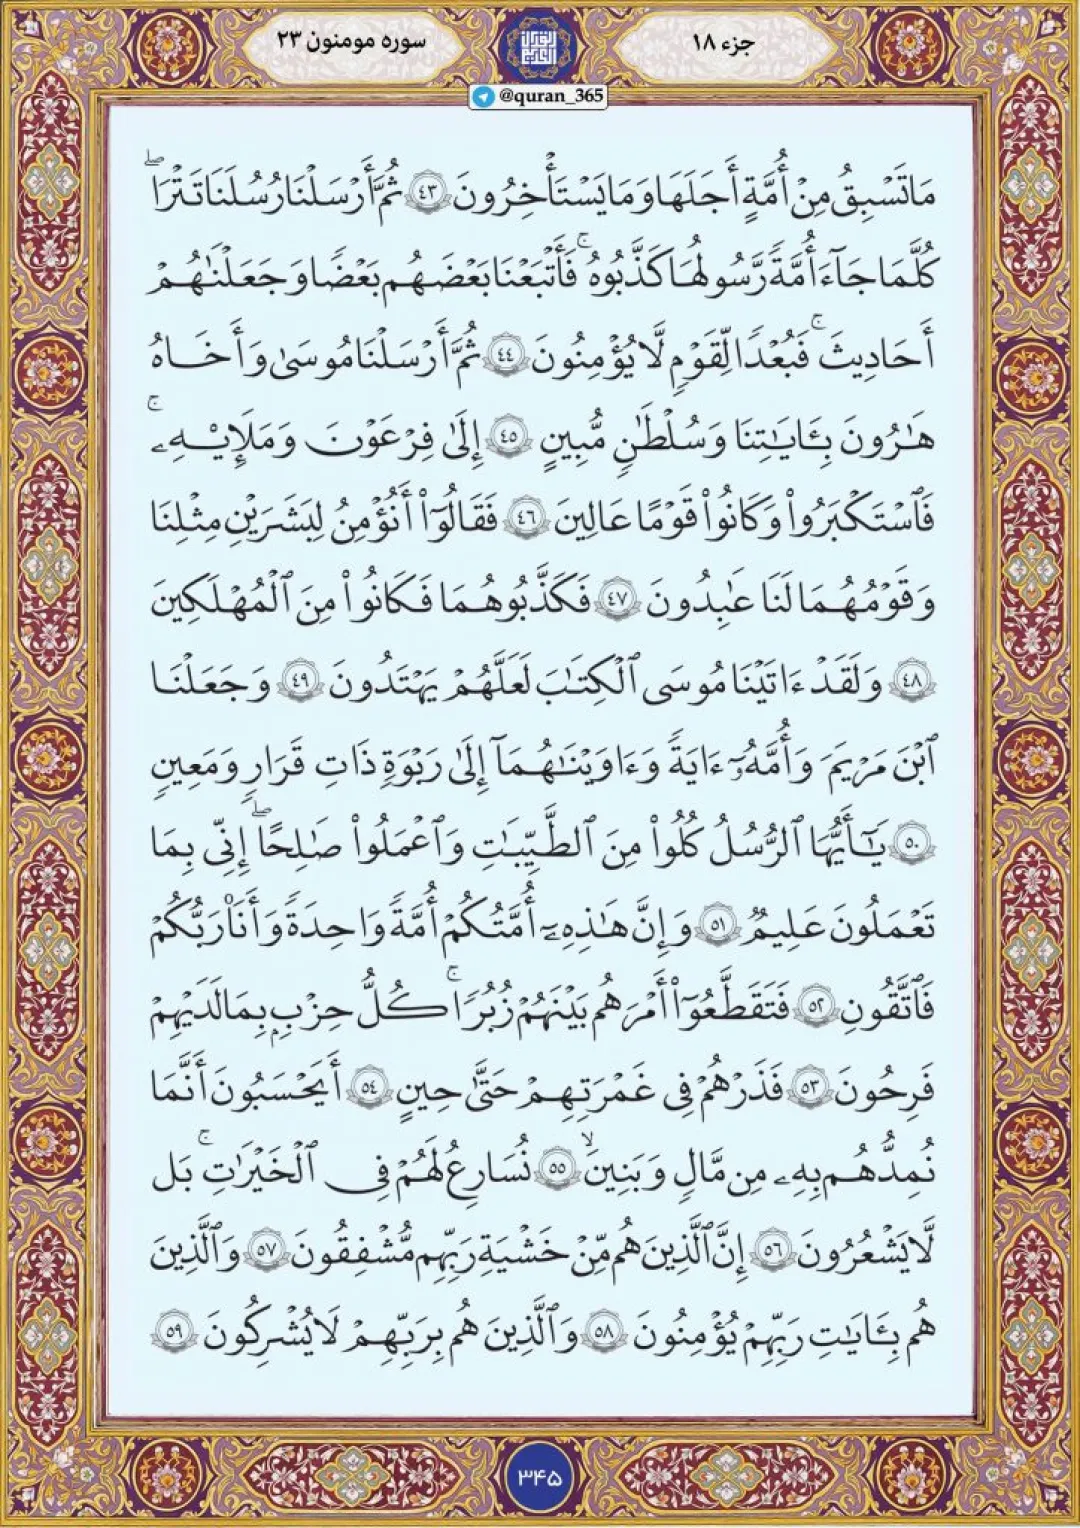 جزء ۱۸
سوره مومنون ۲۳
@quran_365
مَا تَسْبِقُ مِنْ أُمَّةٍ أَجَلَهَا وَمَا يَسْتَأْخِرُونَ ٤٣ ثُمَّ أَرْسَلْنَا رُسُلَنَا تَتْرَا ۖ
كُلَّمَا جَآءَ أُمَّةً رَّسُولُهَا كَذَّبُوهُ ۚ فَأَتْبَعْنَا بَعْضَهُم بَعْضًا وَجَعَلْنَٰهُمْ
أَحَادِيثَ ۚ فَبُعْدًا لِّقَوْمٍ لَّا يُؤْمِنُونَ ٤٤ ثُمَّ أَرْسَلْنَا مُوسَىٰ وَأَخَاهُ
هَٰرُونَ بِـَٔايَٰتِنَا وَسُلْطَٰنٍ مُّبِينٍ ٤٥ إِلَىٰ فِرْعَوْنَ وَمَلَإِي۟هِۦ ۚ
فَٱسْتَكْبَرُوا۟ وَكَانُوا۟ قَوْمًا عَالِينَ ٤٦ فَقَالُوٓا۟ أَنُؤْمِنُ لِبَشَرَيْنِ مِثْلِنَا
وَقَوْمُهُمَا لَنَا عَٰبِدُونَ ٤٧ فَكَذَّبُوهُمَا فَكَانُوا۟ مِنَ ٱلْمُهْلَكِينَ
٤٨ وَلَقَدْ ءَاتَيْنَا مُوسَى ٱلْكِتَٰبَ لَعَلَّهُمْ يَهْتَدُونَ ٤٩ وَجَعَلْنَا
ٱبْنَ مَرْيَمَ وَأُمَّهُۥٓ ءَايَةً وَءَاوَيْنَٰهُمَآ إِلَىٰ رَبْوَةٍ ذَاتِ قَرَارٍ وَمَعِينٍ
٥٠ يَٰٓأَيُّهَا ٱلرُّسُلُ كُلُوا۟ مِنَ ٱلطَّيِّبَٰتِ وَٱعْمَلُوا۟ صَٰلِحًا ۖ إِنِّى بِمَا
تَعْمَلُونَ عَلِيمٌ ٥١ وَإِنَّ هَٰذِهِۦٓ أُمَّتُكُمْ أُمَّةً وَٰحِدَةً وَأَنَا۠ رَبُّكُمْ
فَٱتَّقُونِ ٥٢ فَتَقَطَّعُوٓا۟ أَمْرَهُم بَيْنَهُمْ زُبُرًا ۚ كُلُّ حِزْبٍۭ بِمَا لَدَيْهِمْ
فَرِحُونَ ٥٣ فَذَرْهُمْ فِى غَمْرَتِهِمْ حَتَّىٰ حِينٍ ٥٤ أَيَحْسَبُونَ أَنَّمَا
نُمِدُّهُم بِهِۦ مِن مَّالٍ وَبَنِينَ ۙ ٥٥ نُسَارِعُ لَهُمْ فِى ٱلْخَيْرَٰتِ ۚ بَل
لَّا يَشْعُرُونَ ٥٦ إِنَّ ٱلَّذِينَ هُم مِّنْ خَشْيَةِ رَبِّهِم مُّشْفِقُونَ ٥٧ وَٱلَّذِينَ
هُم بِـَٔايَٰتِ رَبِّهِمْ يُؤْمِنُونَ ٥٨ وَٱلَّذِينَ هُم بِرَبِّهِمْ لَا يُشْرِكُونَ ٥٩
۳۴۵